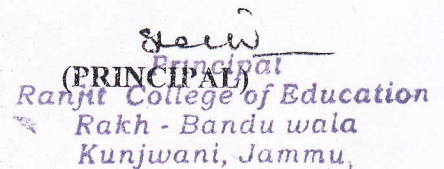 (PRINCIPAL)
Principal
Ranjit College of Education
Rakh - Bandu wala
Kunjwani, Jammu,